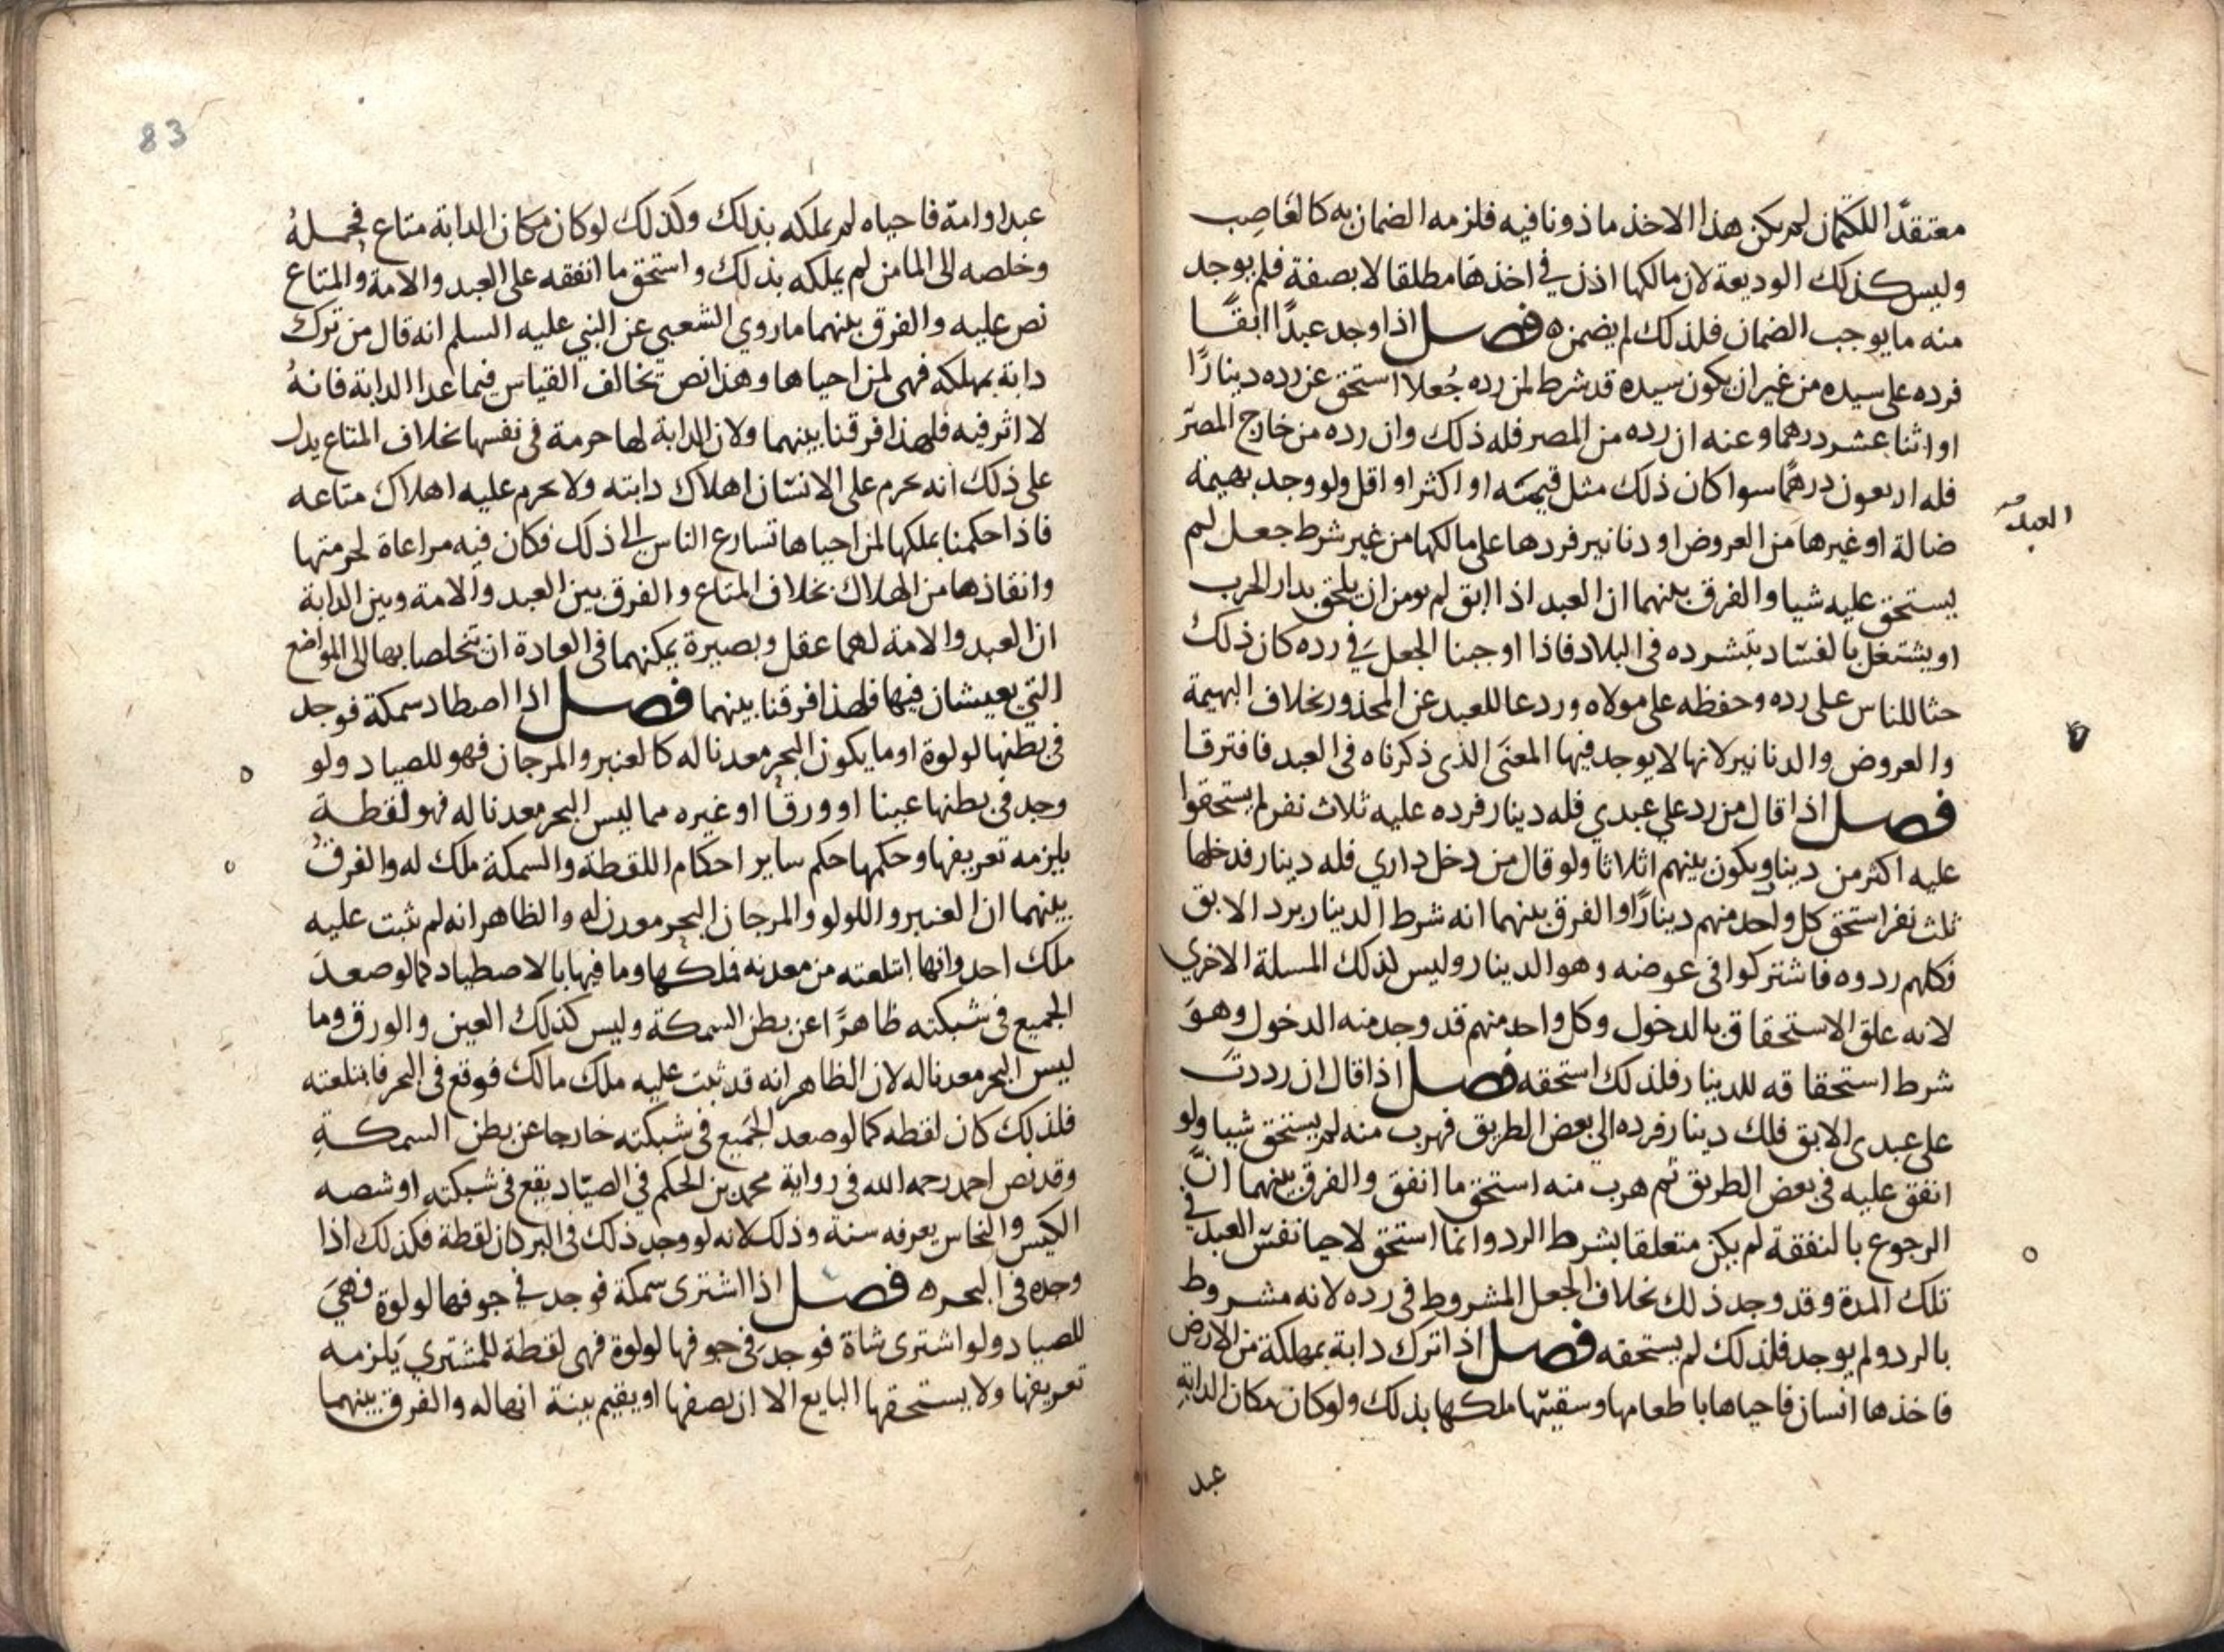 معتقدًا للكتمان لم يكن هذا الاخذ ماذونا فيه فلزمه الضمان به كالغاصب
وليس كذلك الوديعة لان مالكها اذن في اخذها مطلقا لا بصفة فلم يوجد
منه ما يوجب الضمان فلذلك لم يضمن ه فصل اذا وجد عبدًا ابقًا
فرده على سيده من غير ان يكون سيده قد شرط لمن رده جُعلا استحق عن رده دينارًا
او اثنا عشر درهما وعنه ان رده من المصر فله ذلك وان رده من خارج المصر
فله اربعون درهمًا سوا كان ذلك مثل قيمته او اكثر او اقل ولو وجد بهيمة
العبد
ضالة او غيرها من العروض او دنانير فردها على مالكها من غير شرط جعل لم
يستحق عليه شيا والفرق بينهما ان العبد اذا ابق لم يومن ان يلحق بدار الحرب
او يشتغل بالفساد بتشرده في البلاد فاذا اوجبنا الجعل في رده كان ذلك
حثا للناس على رده وحفظه على مولاه وردعا للعبد عن المحذور بخلاف البهيمة
والعروض والدنانير لانها لا يوجد فيها المعنى الذي ذكرناه في العبد فافترقا
فصل اذا قال من رد علي عبدي فله دينار فرده عليه ثلاث نفر لم يستحقوا
عليه اكثر من دينار ويكون بينهم اثلاثا ولو قال من دخل داري فله دينار فدخلها
ثلث نفر استحق كل واحد منهم دينارًا والفرق بينهما انه شرط الدينار برد الابق
فكلهم ردوه فاشتركوا في عوضه وهو الدينار وليس لذلك المسلة الاخري
لانه علق الاستحقاق بالدخول وكل واحد منهم قد وجد منه الدخول وهو
شرط استحقاقه للدينار فلذلك استحقه فصل اذا قال ان رددت
على عبدى الابق فلك دينار فرده الى بعض الطريق فهرب منه لم يستحق شيا ولو
انفق عليه في بعض الطريق ثم هرب منه استحق ما انفق والفرق بينهما ان
الرجوع بالنفقة لم يكن متعلقا بشرط الرد وانما استحق لاحيا نفس العبد في
تلك المدة وقد وجد ذلك بخلاف الجعل المشروط في رده لانه مشروط
بالرد ولم يوجد فلذلك لم يستحقه فصل اذا ترك دابة بمهلكة من الارض
فاخذها انسان فاحياها باطعامها وسقيتها ملكها بذلك ولو كان مكان الدابة
عبد
83
عبدا او امة فاحياه لم يملكه بذلك وكذلك لو كان مكان الدابة متاع فحمله
وخلصه الى المامن لم يملكه بذلك واستحق ما انفقه على العبد والامة والمتاع
نص عليه والفرق بينهما ما روي الشعبي عن النبي عليه السلم انه قال من ترك
دابة بمهلكه فهى لمن احياها وهذا نص تخالف القياس فيما عدا الدابة فانهُ
لا اثر فيه فلهذا فرقنا بينهما ولان الدابة لها حرمة في نفسها بخلاف المتاع يدل
على ذلك انه يحرم على الانسان اهلاك دابته ولا يحرم عليه اهلاك متاعه
فاذا حكمنا بملكها لمن احياها تسارع الناس الى ذلك فكان فيه مراعاة لحرمتها
وانقاذها من الهلاك بخلاف المتاع والفرق بين العبد والامة وبين الدابة
ان العبد والامة لهما عقل وبصيرة يمكنهما في العادة ان تتخلصا بها الى المواضع
التي يعيشان فيها فلهذا فرقنا بينهما فصل اذا اصطاد سمكة فوجد
في بطنها لولوة او ما يكون البحر معدنا له كالعنبر والمرجان فهو للصياد ولو
وجد في بطنها عينا او ورقا او غيره مما ليس البحر معدنا له فهو لقطة
يلزمه تعريفها وحكمها حكم ساير احكام اللقطة والسمكة ملك له والفرق
بينهما ان العنبر واللولو والمرجان البحر معدن له والظاهر انه لم يثبت عليه
ملك احد وانها ابتلعته من معدنه فملكها وما فيها بالاصطياد كما لو صعد
الجميع في شبكته ظاهرًا عن بطن السمكة وليس كذلك العين والورق وما
ليس البحر معدنا له لان الظاهر انه قد ثبت عليه ملك مالك فوقع في البحر فابتلعته
فلذلك كان لقطه كما لو صعد الجميع في شبكته خارجا عن بطن السمكة
وقد نص احمد رحمه الله في رواية محمد بن الحكم في الصياد يقع في شبكته او شصه
الكيس والنحاس يعرفه سنة وذلك لانه لو وجد ذلك في البر كان لقطة فكذلك اذا
وجده في البحر ه فصل اذا اشترى سمكة فوجد في جوفها لولوة فهي
للصياد ولو اشترى شاة فوجد في جوفها لولوة فهي لقطة للمشتري يلزمه
تعريفها ولا يستحقها البايع الا ان يصفها او يقيم بينة انها له والفرق بينهما